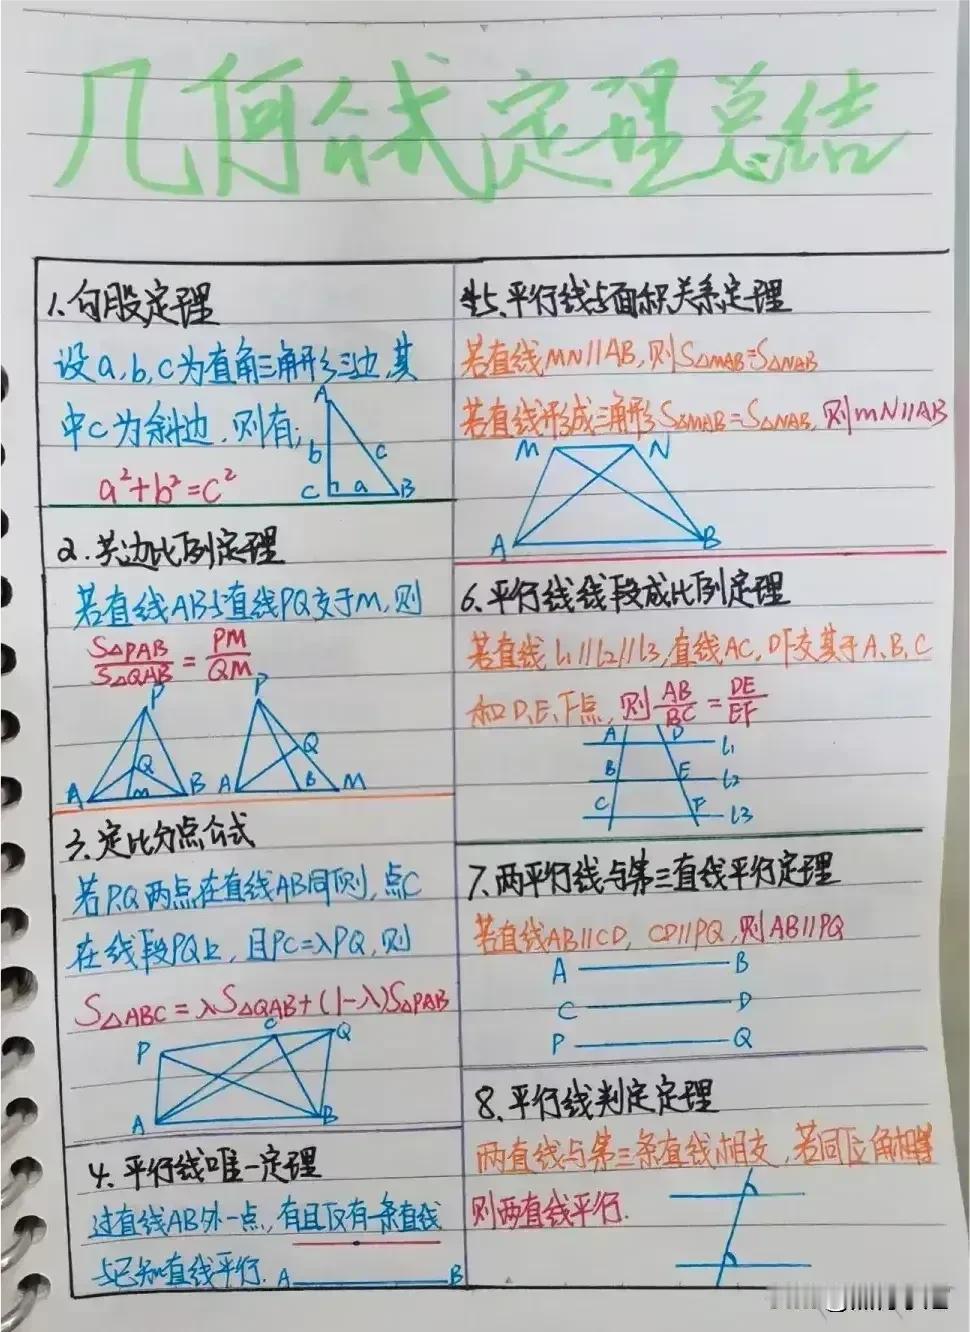 几何公式定理总结
1.勾股定理
设a,b,c为直角三角形三边,其
中c为斜边,则有;
a²+b²=c²
A
b
c
C
a
B
2.共边比例定理
若直线AB与直线PQ交于M,则
S△PAB/S△QAB=PM/QM
P
Q
A
M
B
P
Q
A
B
M
3.定比分点公式
若P.Q两点在直线AB同侧,点C
在线段PQ上,且PC=λPQ,则
S△ABC=λS△QAB+(1-λ)S△PAB
P
C
Q
A
B
4.平行线唯一定理
过直线AB外一点,有且仅有一条直线
与已知直线平行.
A
B
5.平行线与面积关系定理
若直线MN//AB,则S△MAB=S△NAB
若直线形成三角形S△MAB=S△NAB,则MN//AB
M
N
A
B
6.平行线线段成比例定理
若直线l1//l2//l3,直线AC,DF交其于A、B、C
和D、E、F点,则AB/BC=DE/EF
A
D
l1
B
E
l2
C
F
l3
7.两平行线与第三直线平行定理
若直线AB//CD,CD//PQ,则AB//PQ
A
B
C
D
P
Q
8.平行线判定定理
两直线与第三条直线相交,若同位角相等
则两直线平行.